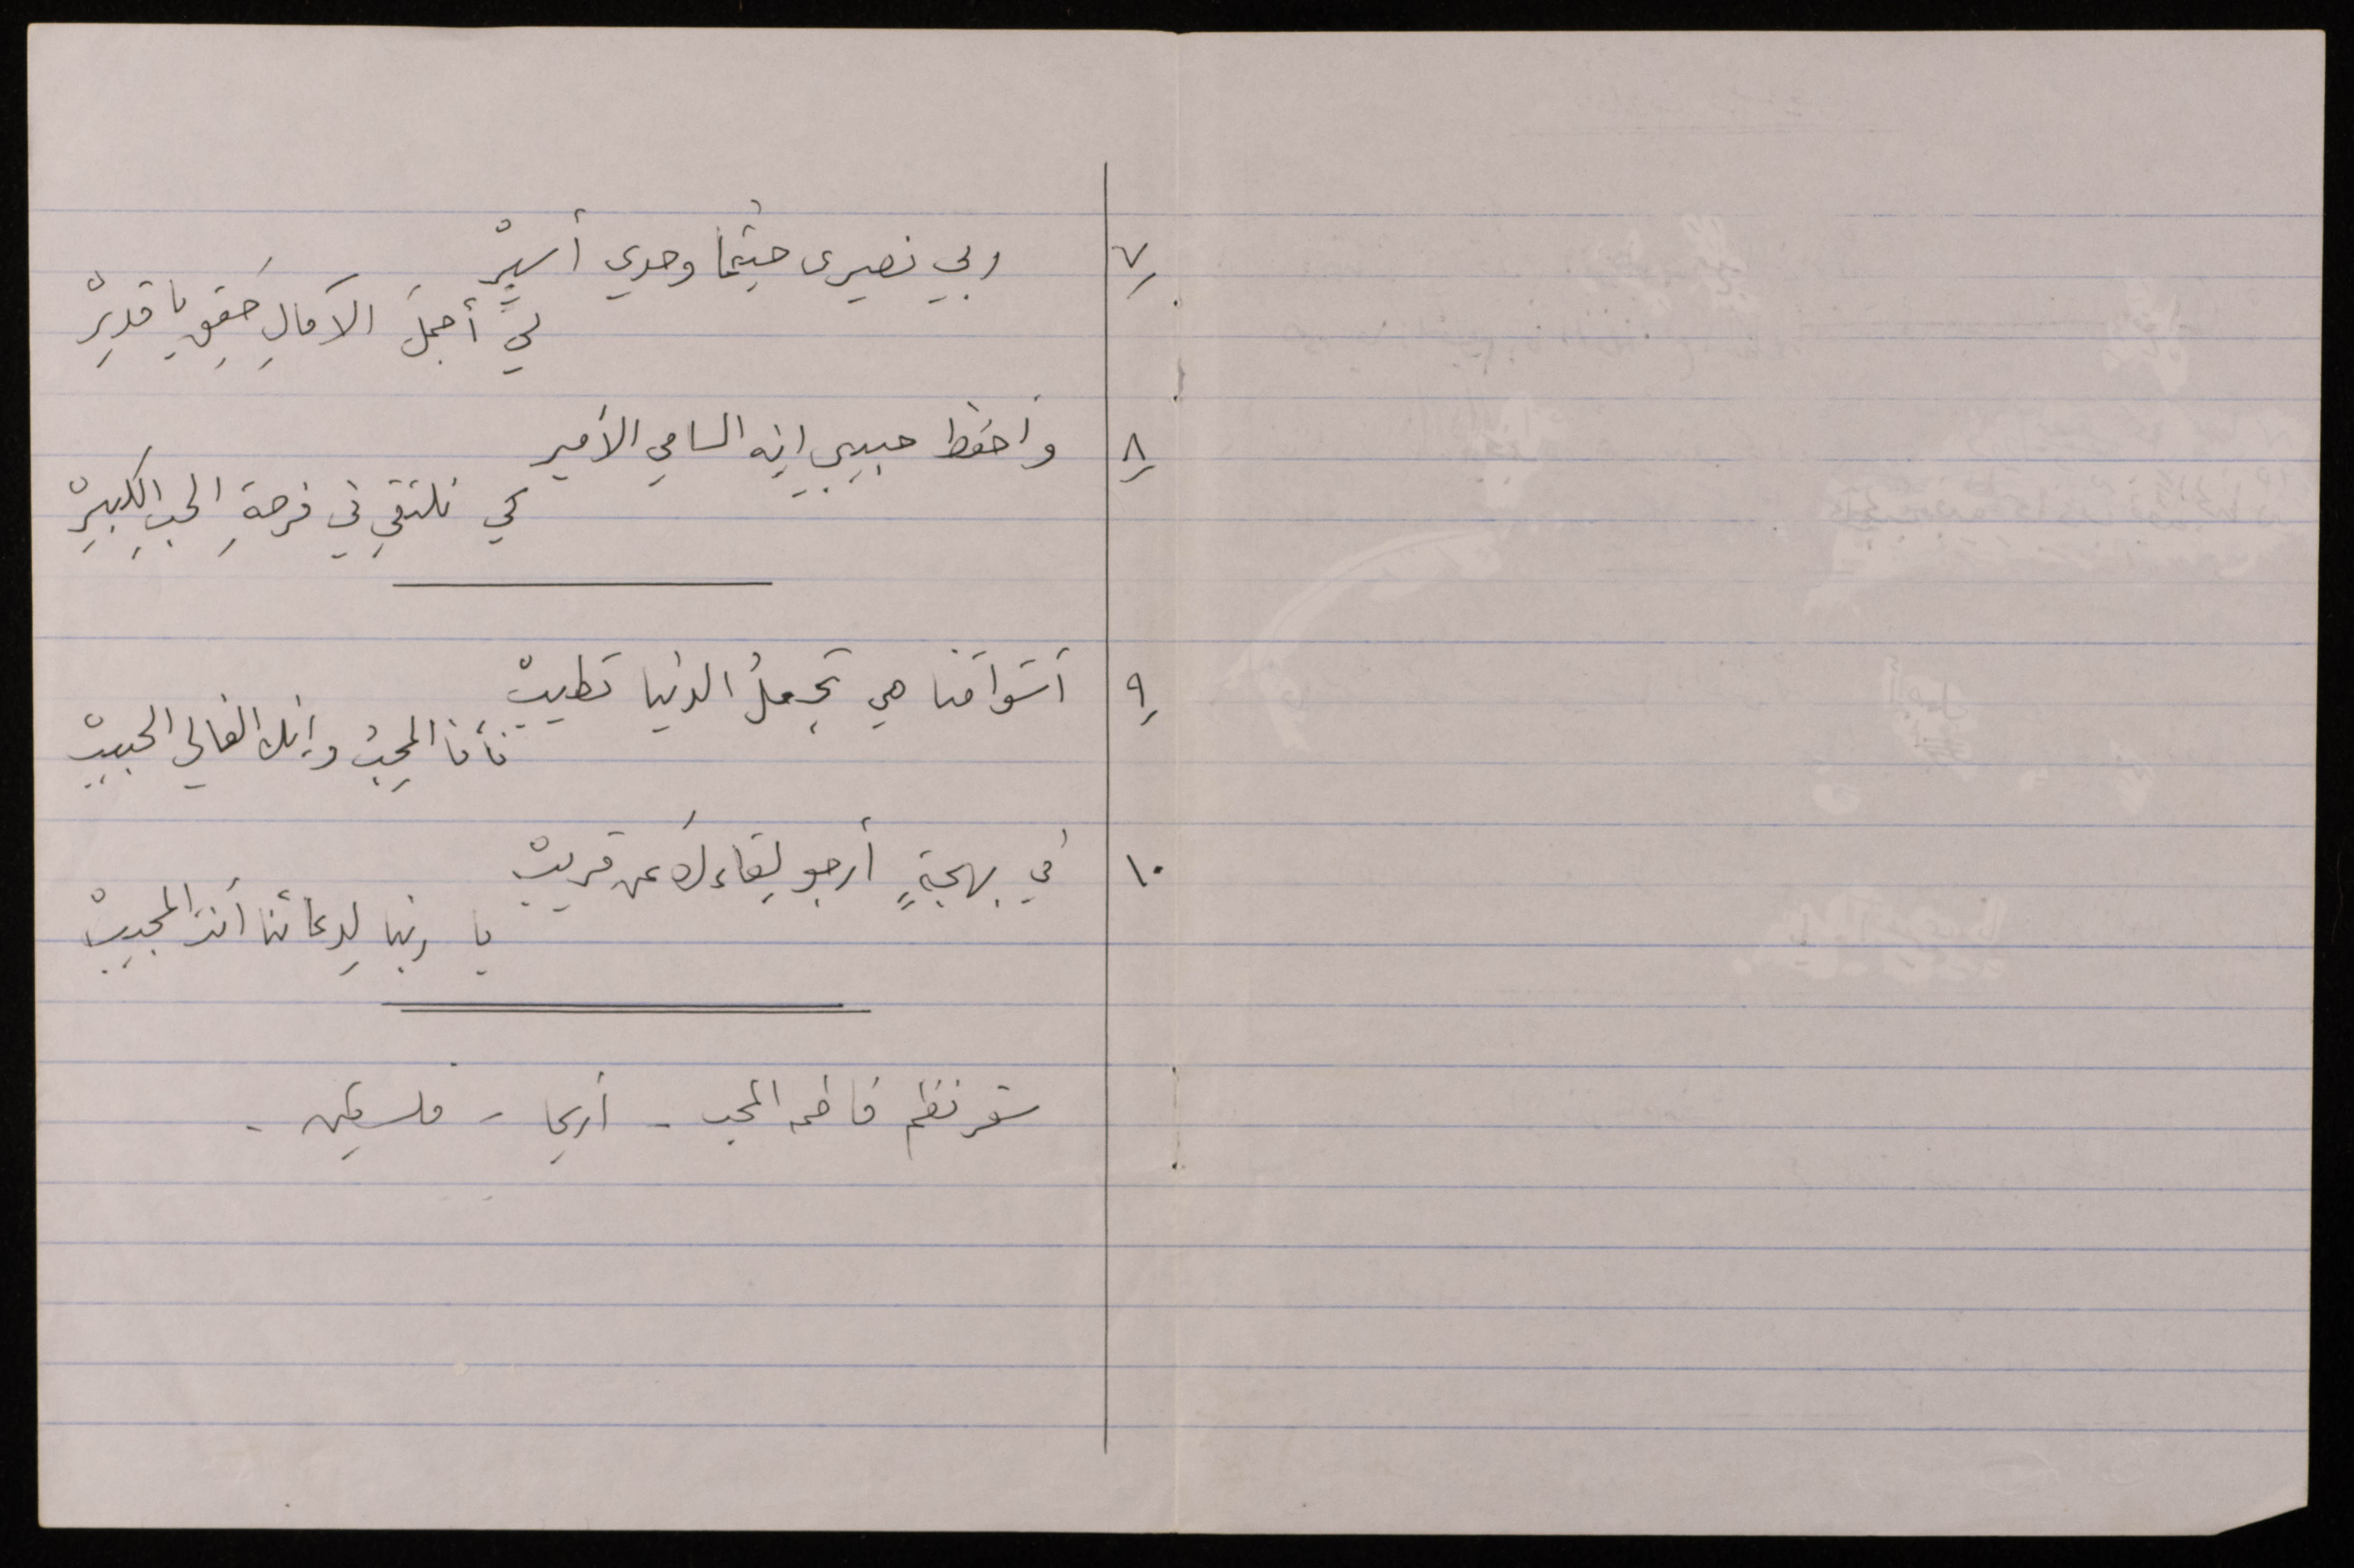 ٧ ربي نصيرى حيثما وحدي أسيرْ
لي أجملَ الآمالِ حَقِق يا قديرْ
٨ وأحفظ حبيبي إنه السامي الأمير
كي نلتقي في فرحةِ الحبِ الكبيرْ
٩ أشواقنا هي تجعلُ الدنيا تطيبْ
فأنا المحِبُ وإنك الغالي الحبيبْ
١٠ في بهجةٍ أرجو لِقاءكَ عن قريبْ
يا ربنا لِدعائنا أنتَ المجيبْ
شعر نظم فاطمه المحب - أريحا - فلسطين -